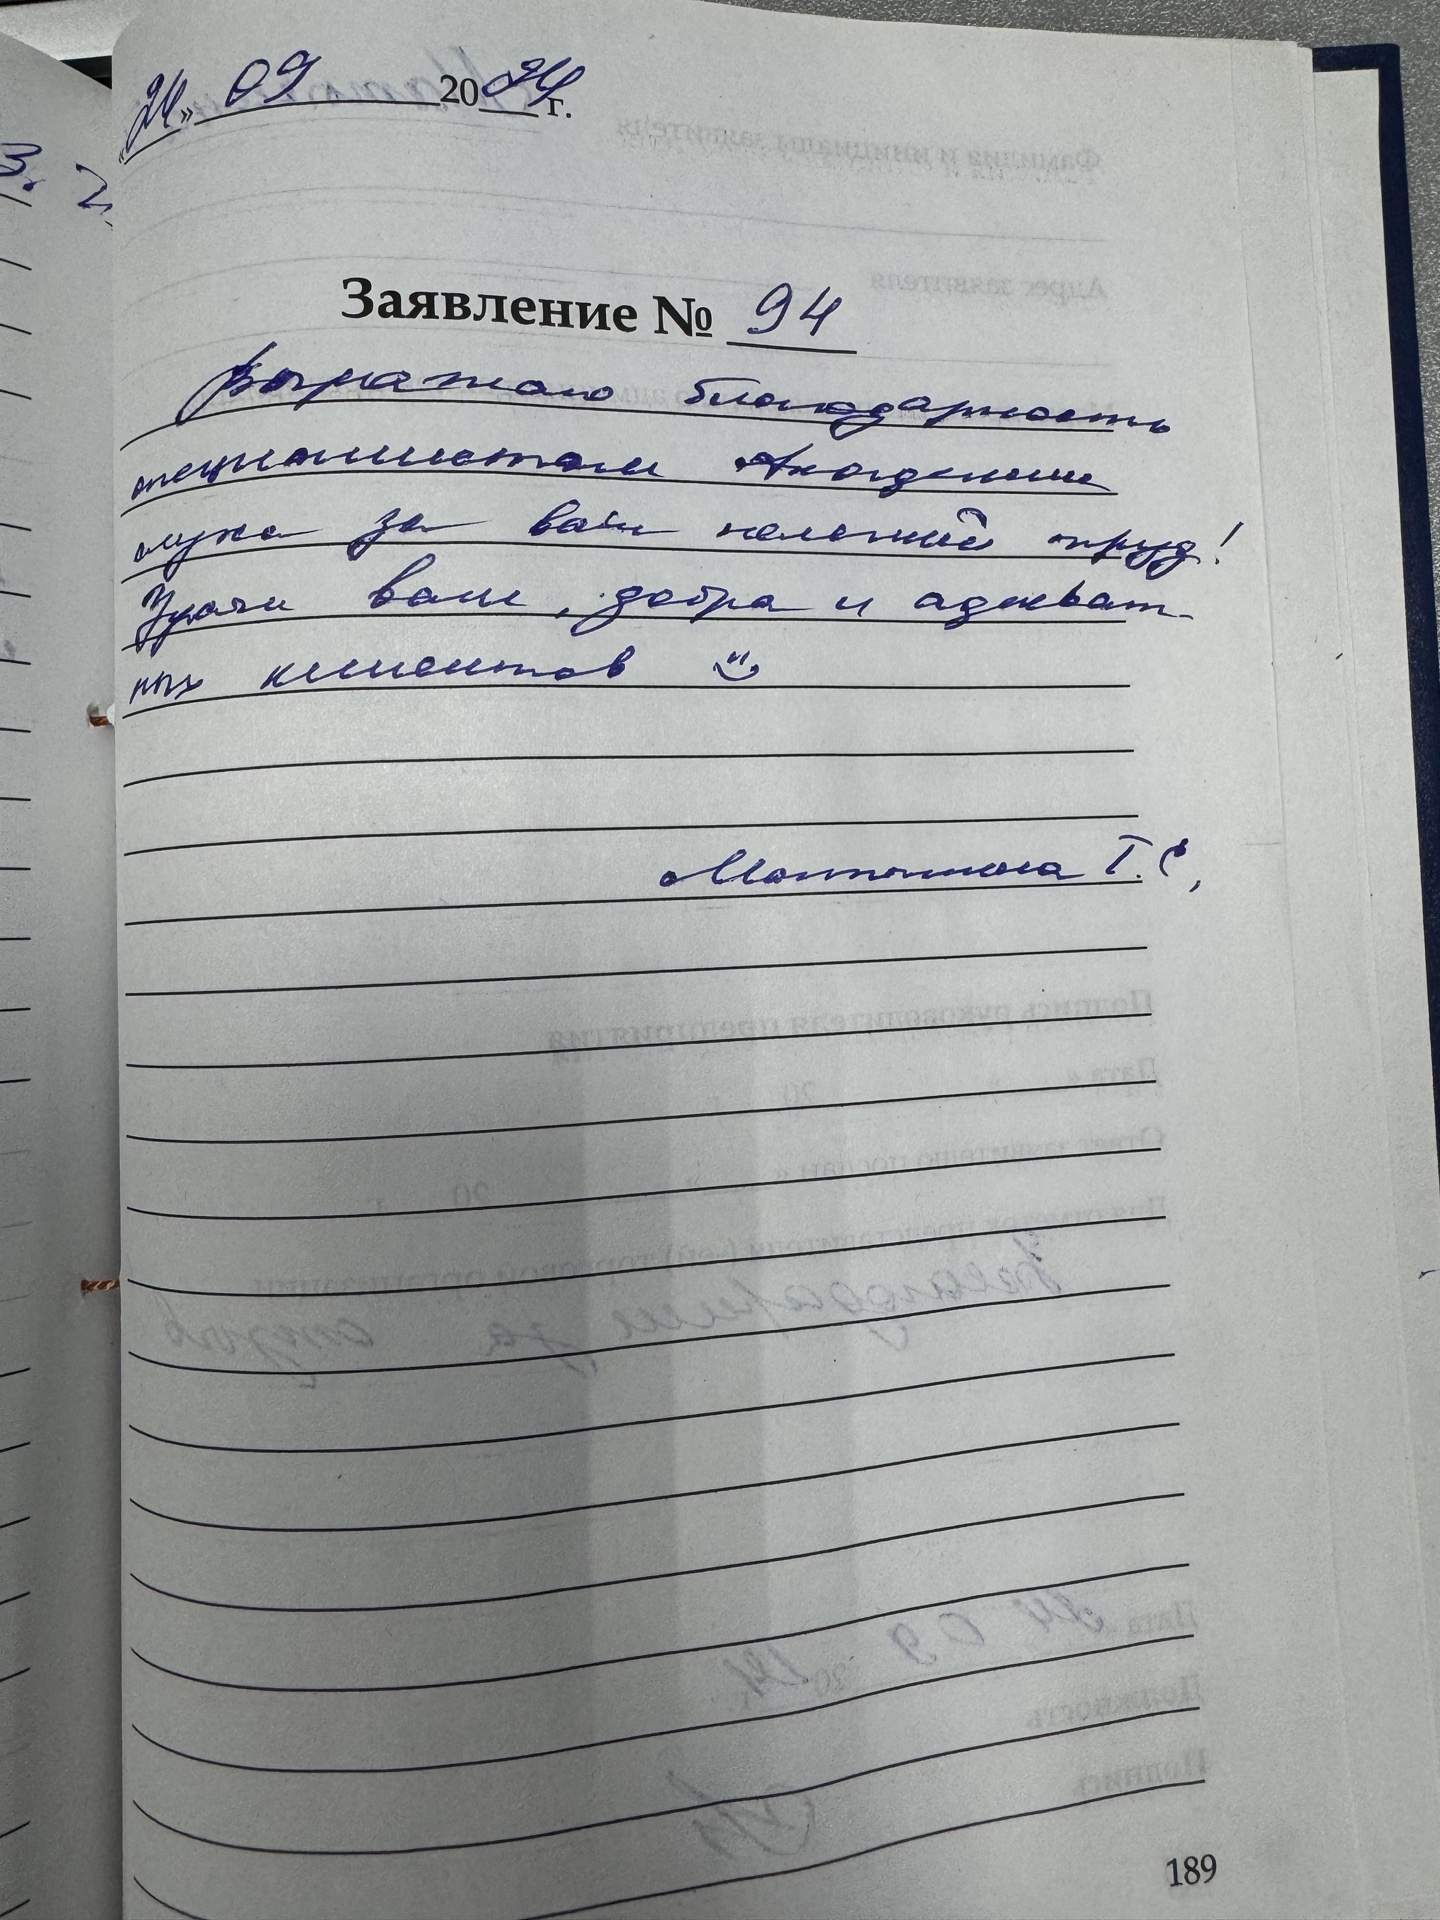 «24» 09 2024 г.
Заявление № 94
Выражаю благодарность
специалистам Академии
слуха за ваш нелегкий труд!
Удачи вам, добра и адекват-
ных клиентов
Т. С.
189